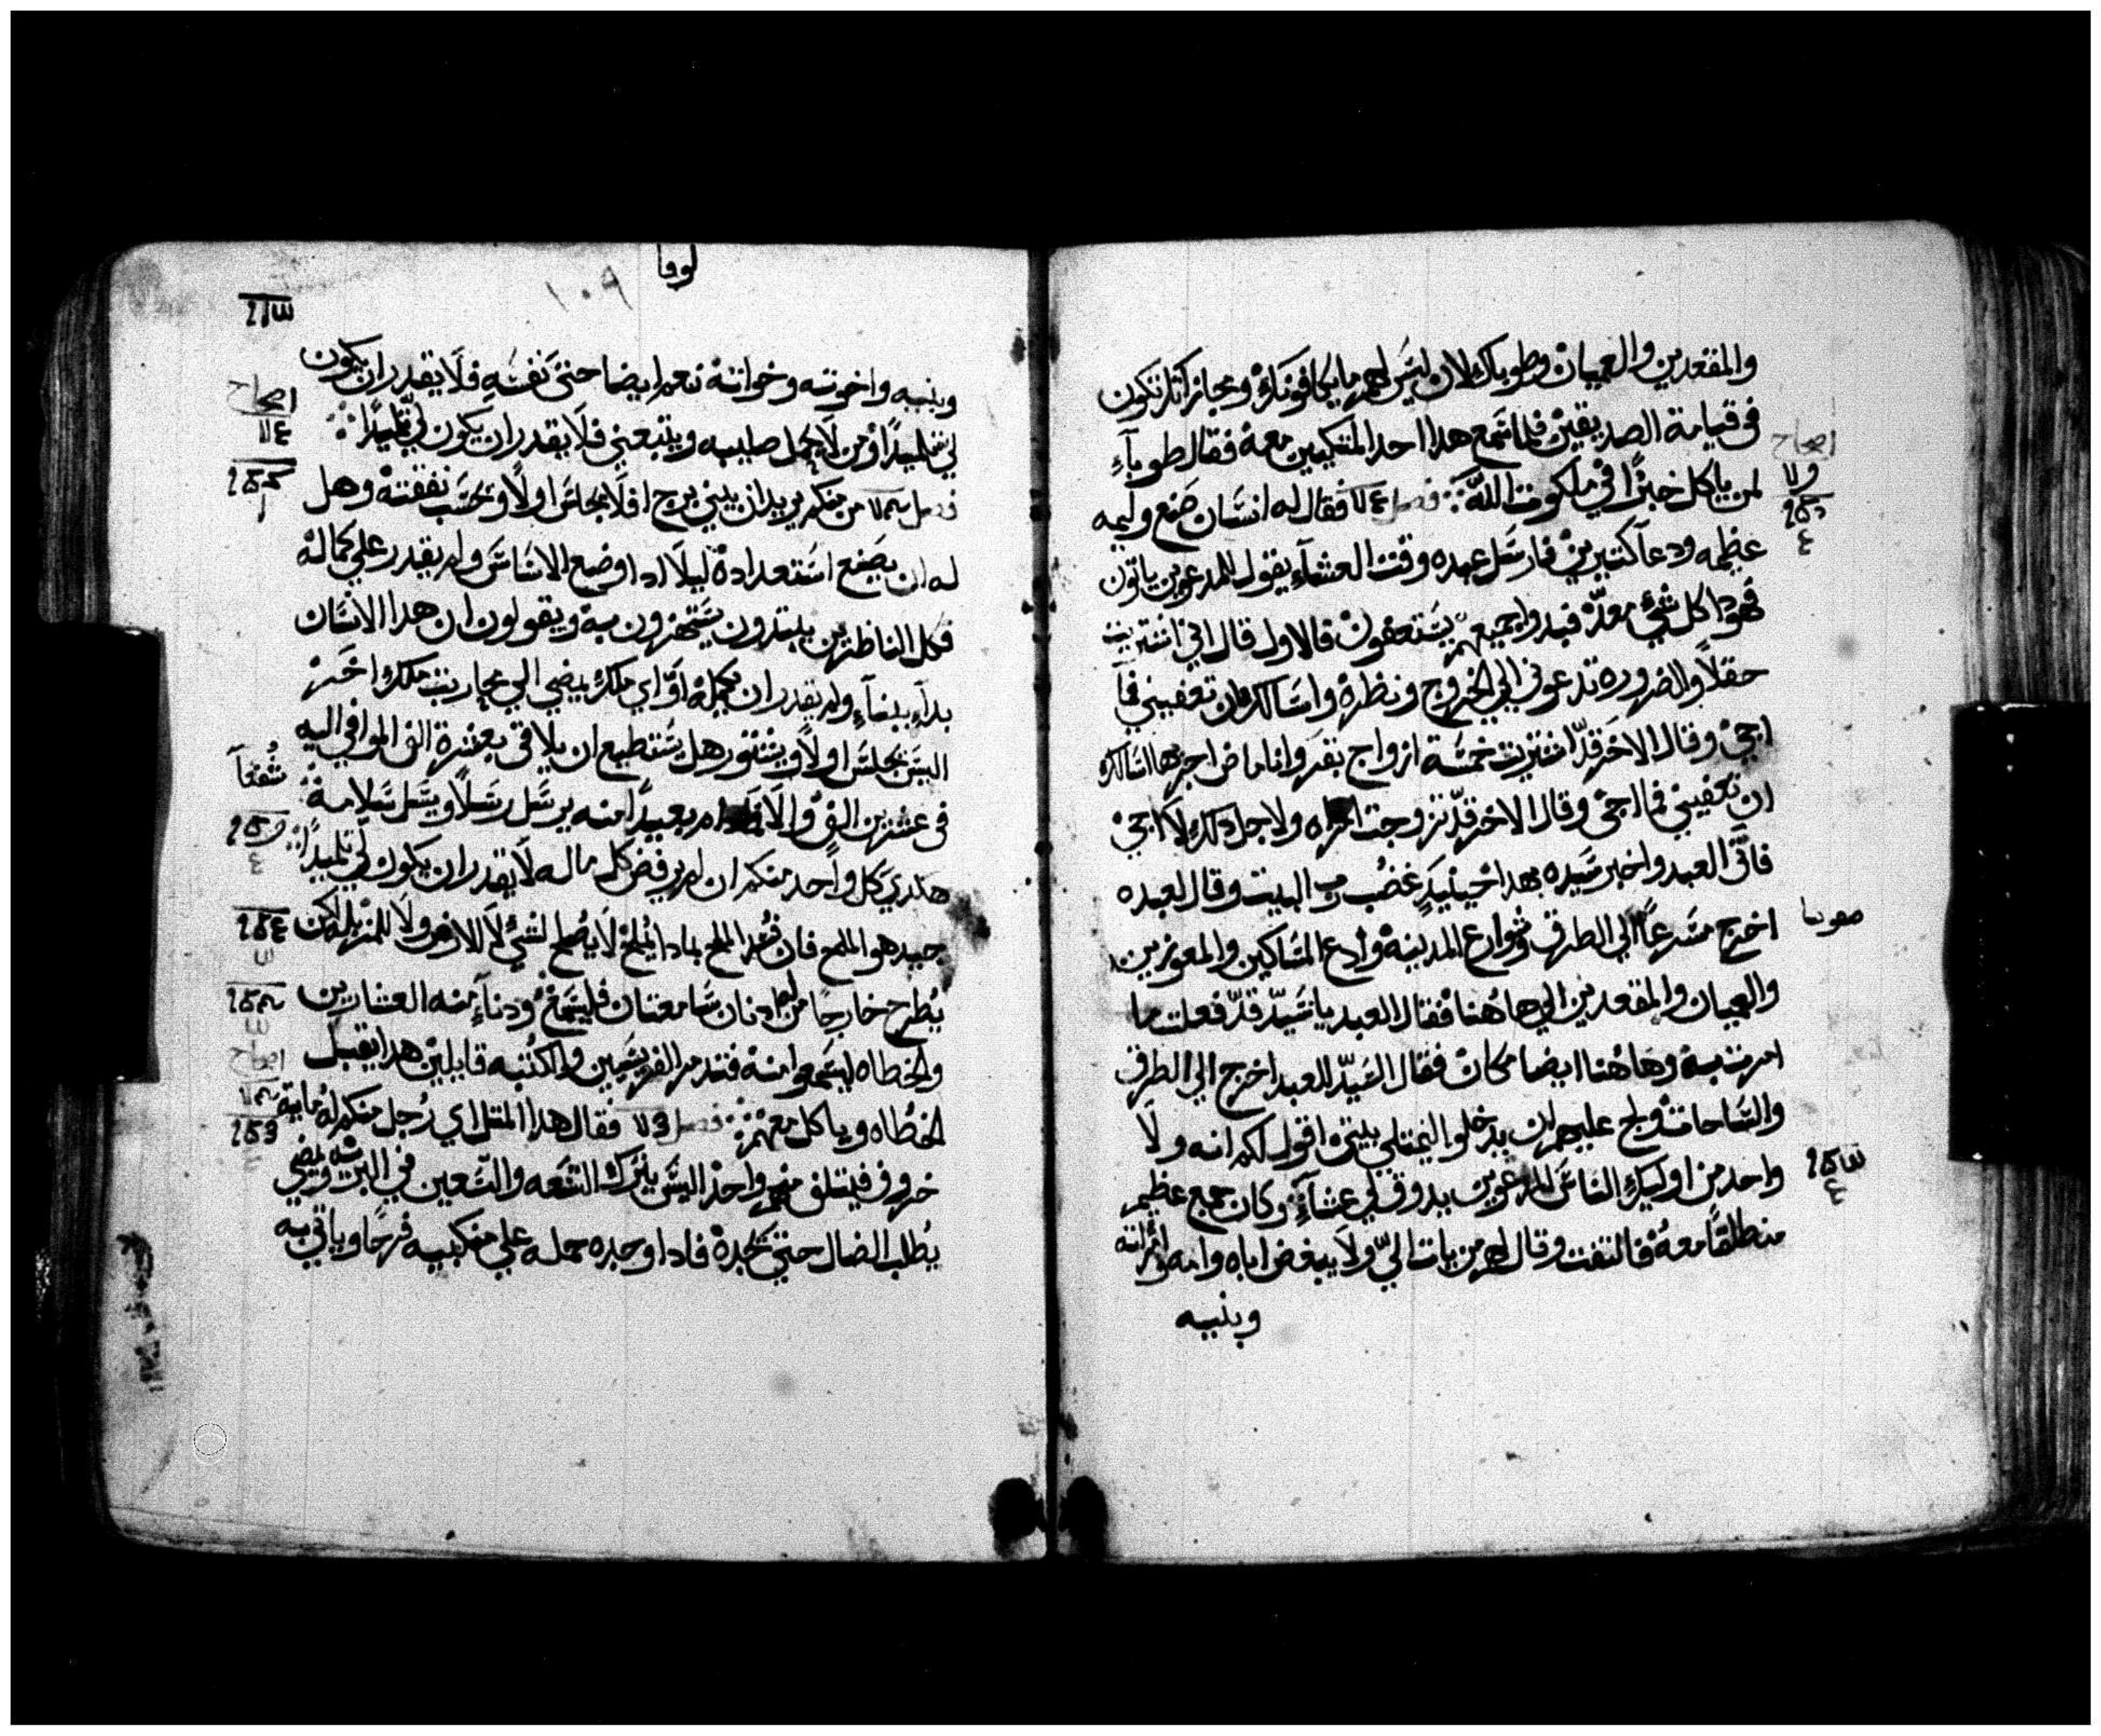 والمقعدين والعميان وطوباك لان ليس لهم ما يكافونك ومجازاتك تكون
في قيامة الصديقين فلما سمع هدا احد المتكيين معه فقال طوباء
لمن ياكل خبزًا في ملكوت الله فصل فقال له انسان صنع وليمه
عظيمه ودعا كتيرين فارسل عبده وقت العشاء يقول للمدعوين ياتون
فهودا كل شيء معدّ فبدوا جميعهم يستعفون فالاول قال اني اشتريت
حقلاً والضروره تدعوني الي الخروج ونظره واسالك ان تعفيني فما
اجي وقال الاخر قد اشتريت خمسة ازواج بقر وانا ماض اجربها اسالك
ان تعفيني فما اجي وقال الاخر قد تزوجت امراه ولاجل دلك لا اجي
فاتى العبد واخبر سيده بهدا حينيد غضب رب البيت وقال لعبده
اخرج مسرعاً الي الطرق وشوارع المدينه وادع المساكين والمعوزين
والعميان والمقعدين الي هاهنا فقال العبد ياسيد قد فعلت ما
امرت به وهاهنا ايضا مكان فقال السيد للعبد اخرج الي الطرق
والساحات ولج عليهم ان يدخلوا ليمتلي بيتي اقول لكم انه ولا
واحد من اوليك الناس المدعوين يدوق لي عشاء وكان جمع عظيم
منطلقاً معه فالتفت وقال لهم من يات اليّ ولا يبغض اباه وامه وامراته
وبنيه
اصحاح
لوقا
١٠٩
وبنيه واخوته وخواته نعم ايضا حتى نفسه فلا يقدر ان يكون
لي تلميدًا ومن لا يحمل صليبه ويتبعني فلا يقدر ان يكون لي تلميدًا
فصل من منكم يريد ان يبني برج افلا يجلس اولاً ويحسب نفقته وهل
له ان يصنع استعداده ليلا ادا وضع الاساس ولم يقدر علي كماله
فكل الناظرين يبتدون يستهزون به ويقولون ان هدا الانسان
بداء ببناء ولم يقدر ان يكمله او اي ملك يمضي الي محاربت ملك اخر
اليس يجلس اولاً ويشتور هل يستطيع ان يلاقي بعشرة الف الموافي اليه
في عشرين الف والا فما دام بعيدًا منه يرسل رسلاً ويسل سلامه
هكدي كل واحد منكم ان لم يرفض كل ماله لا يقدر ان يكون لي تلميدًا
جيد هو الملح فان فسد الملح بمادا يملح لا يصلح لشي لا للارض ولا للمزبله لكن
يُطرح خارجًا من له ادنان سامعتان فليسمع ودناء منه العشارين
والخطاه ليسمعوا منه فتدمر الفريسيين والكتبه قايلين هدا يقبل
الخطاه وياكل معهم فصل فقال هدا المتل اي رجل منكم له ماية
خروف فيتلف منهم واحد اليس يترك التسعه والتسعين في البريه ويمضي
يطلب الضال حتي يجده فادا وجده حمله علي منكبيه فرحًا وياتي به
اصحاح
شفعاً
اصحاح